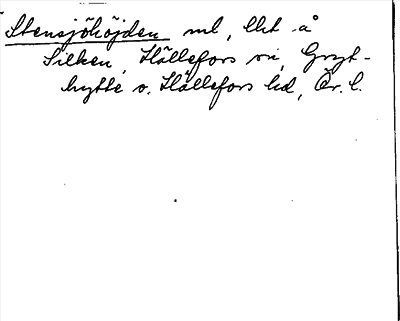 Stensjöhöjden ml, Ult å
Silken, Hällefors sn, Gryt-
hytte o. Hällefors hd, Ör. l.